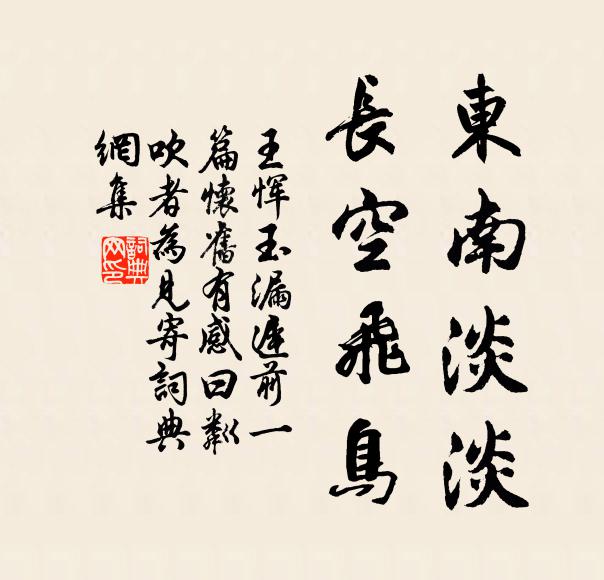 東南淡淡
長空飛鳥
王惲玉漏遲前一
篇懷舊有感曰粼
吹者為見寄詞典
網集
詞典
网印